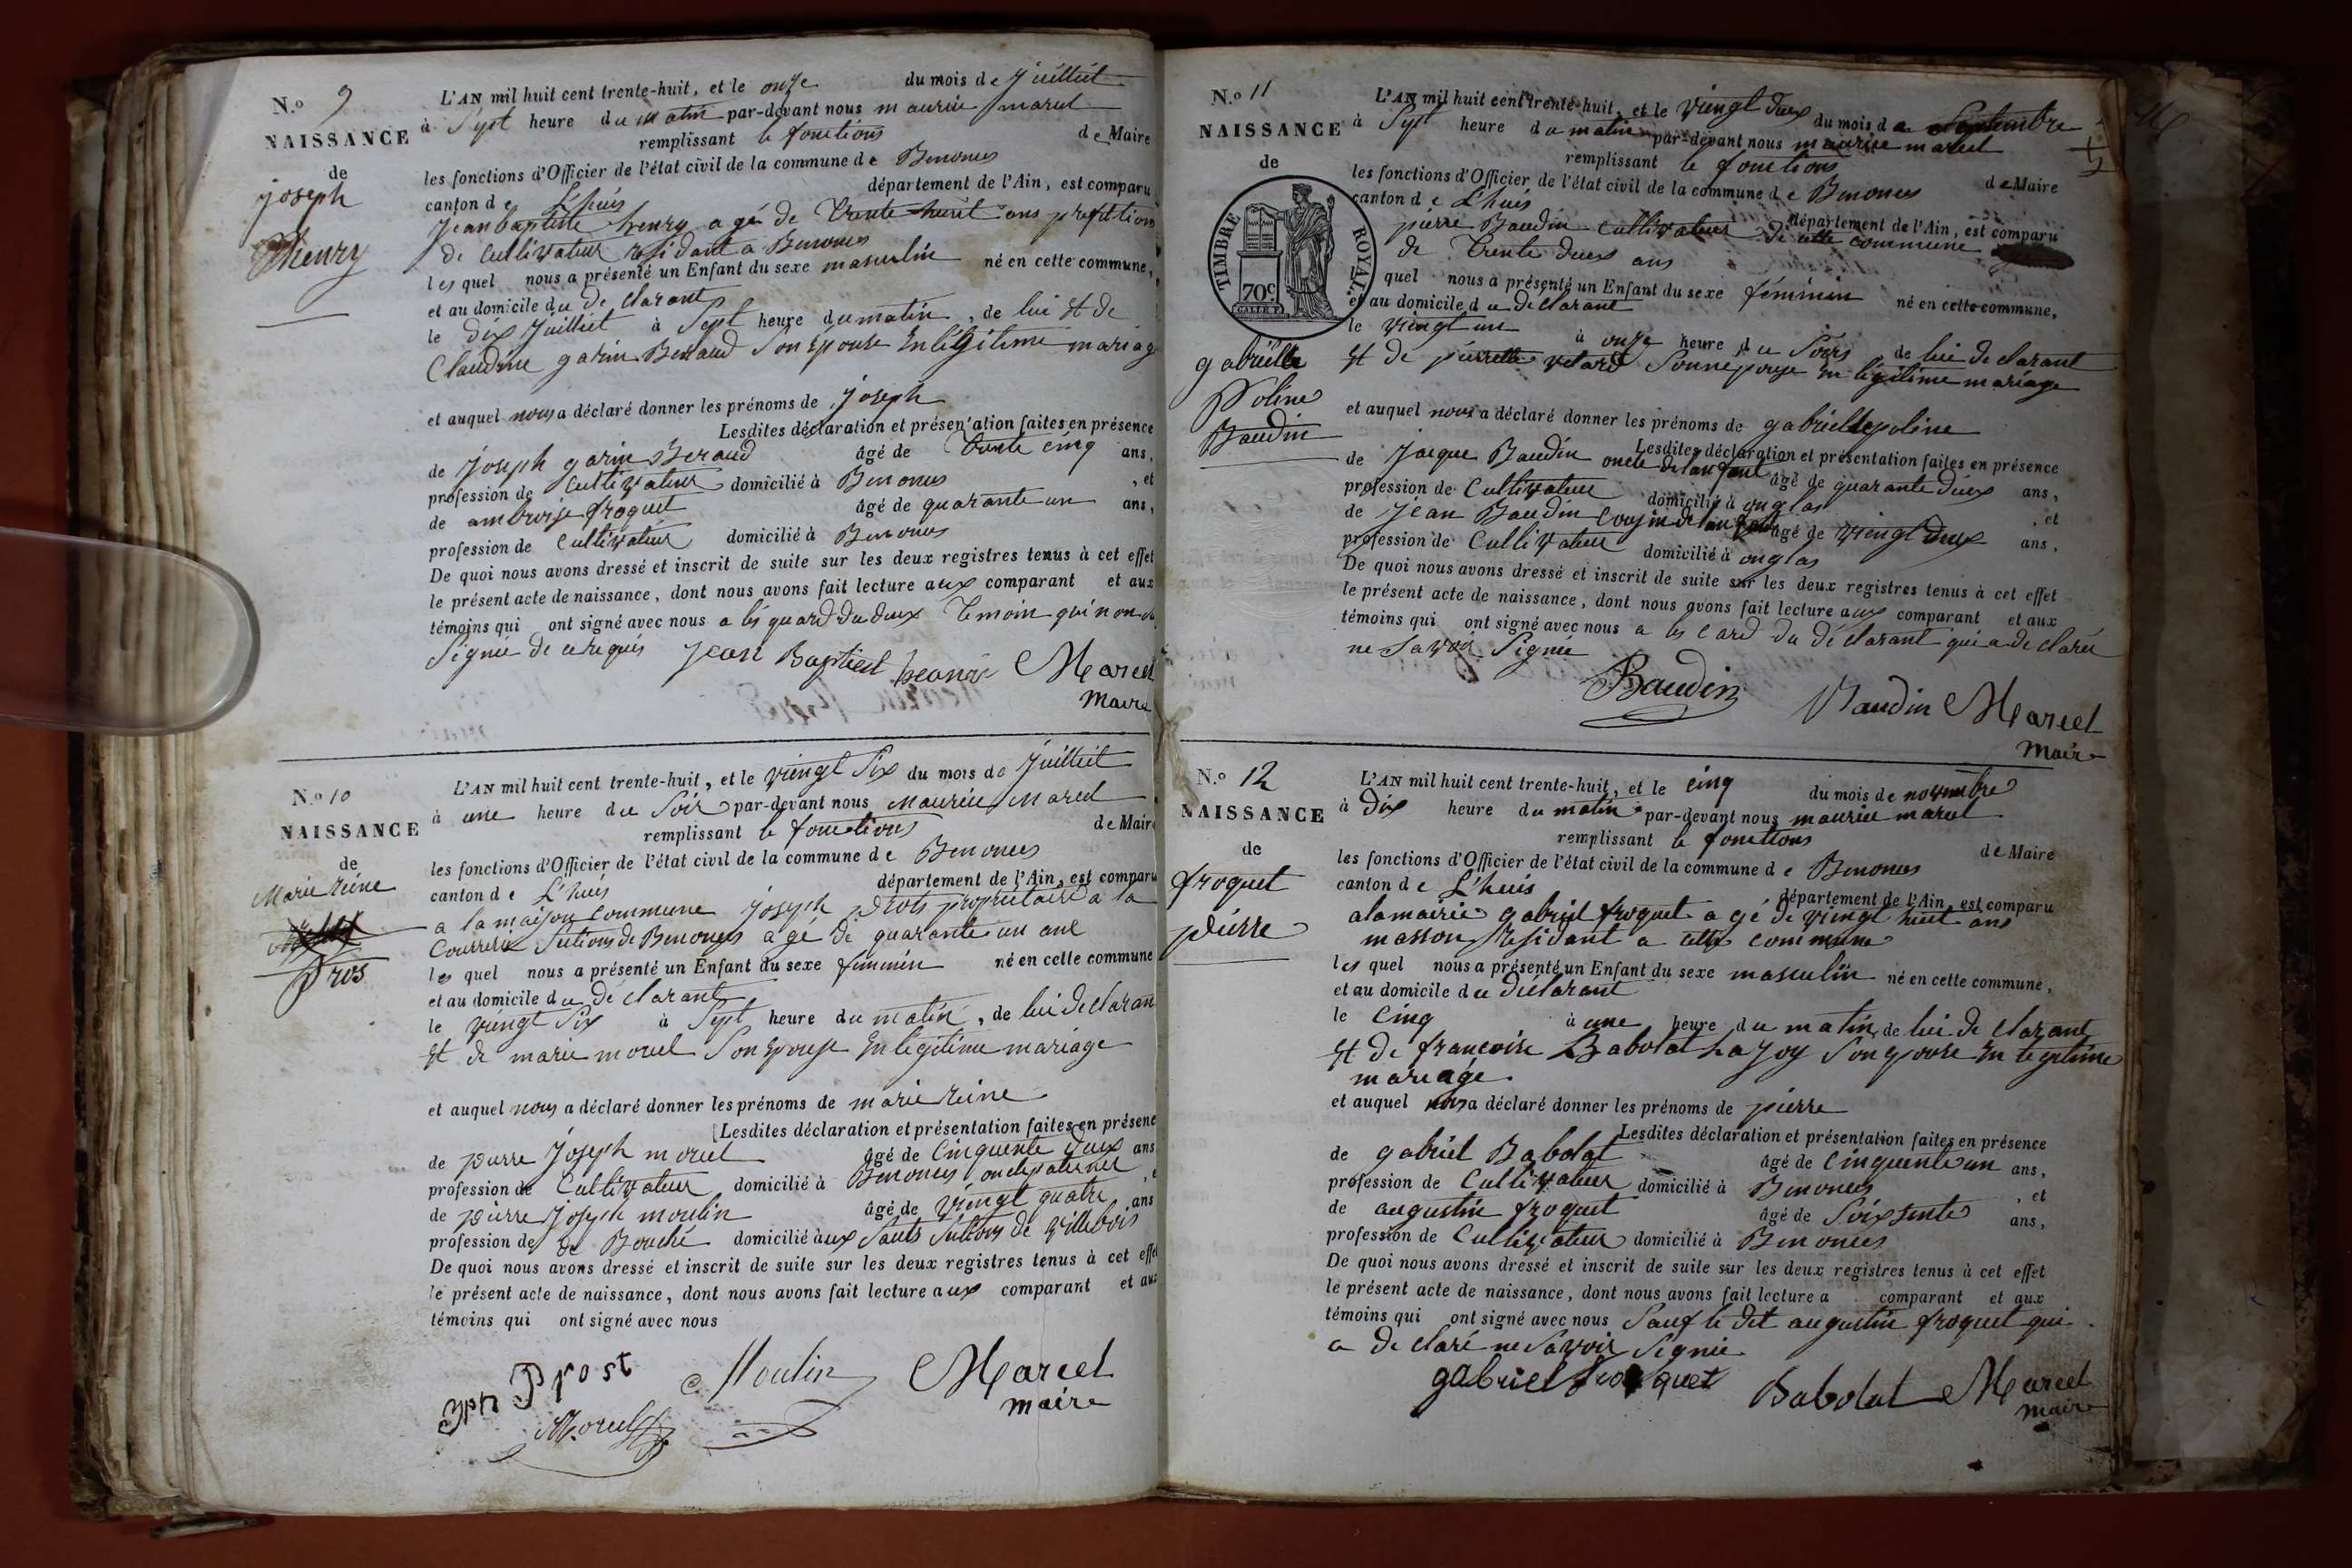 N.o 9
NAISSANCE
de
joseph
henry
L'AN mil huit cent trente-huit, et le onze du mois de juilliet
à Sept heure du matin par-devant nous maurice marcel
remplissant le fonctions de Maire
les fonctions d'Officier de l'état civil de la commune de Benonces
canton de L'huis département de l'Ain, est comparu
jean baptiste henry agé de trente huit ans profetion
de Cultivateur residant a Benonces
les quel nous a présenté un Enfant du sexe masculin né en cette commune,
et au domicile du de clarant
le dix juilliet à Sept heure du matin, de lui Et de
Claudine garin Beraud Son Epouse En légitime mariage
et auquel nous a déclaré donner les prénoms de joseph
Lesdites déclaration et présentation faites en présence
de joseph garin Beraud âgé de trente cinq ans,
profession de cultivateur domicilié à Benonces, et
de ambroise froquet âgé de quarante un ans,
profession de Cultivateur domicilié à Benonces
De quoi nous avons dressé et inscrit de suite sur les deux registres tenus à cet effet
le présent acte de naissance, dont nous avons fait lecture aux comparant et aux
témoins qui ont signé avec nous a lés quard du deux temoin qui non
Signié de ce requis Jean Baptiest heanri Marcel
Maire
N.o 10
NAISSANCE
de
Marie reine
Pros
L'AN mil huit cent trente-huit, et le viengt Six du mois de juilliet
à une heure du Soir par-devant nous Maurice Marcel
remplissant le fonctions de Maire
les fonctions d'Officier de l'état civil de la commune de Benonces
canton de L'huis département de l'Ain, est comparu
a la maison commune joseph Pros propriétaire a la
Courrerie Sections de Benonces agé de quarante un ans
les quel nous a présenté un Enfant du sexe feminin né en cette commune
et au domicile du Dé clarant
le viengt Six à Sept heure du matin, de lui Declaran
Et de marie morel Son Epouse En légitime mariage
et auquel nous a déclaré donner les prénoms de marie reine
Lesdites déclaration et présentation faites en présence
de pierre joseph morel âgé de Cinquente deux ans
profession de Cultivateur domicilié à Benonces oncle paternel, e
de pierre joseph moulin âgé de viengt quatre ans
profession de de Bouché domicilié aux Sauts Sections de villebois
De quoi nous avons dressé et inscrit de suite sur les deux registres tenus à cet effet
le présent acte de naissance, dont nous avons fait lecture aux comparant et aux
témoins qui ont signé avec nous
Jph Prost Moulin Marcel
Morel maire
N.o 11
NAISSANCE
de
TIMBRE ROYAL
70c.
gabrielle
Poline
Baudin
L'AN mil huit cent trente-huit, et le viengt deux du mois de Septembre
à Sept heure du matin par-devant nous maurice marcel
remplissant le fonctions de Maire
les fonctions d'Officier de l'état civil de la commune de Benonces
canton de L'huis département de l'Ain, est comparu
pierre Baudin Cultivateur de cette commune
de trente deux ans
quel nous a présenté un Enfant du sexe féminin né en cette commune,
et au domicile du déclarant
le viengt un à onze heure du Soirs, de lui de clarant
Et de pierrette velard Sonnepouse En légitime mariage
et auquel nous a déclaré donner les prénoms de gabrielle poline
Lesdites déclaration et présentation faites en présence
de jacque Baudin oncle de lanfant âgé de quarante deux ans,
profession de Cultivateur domicilié à onglas, et
de jean Baudin cousin de lanfant âgé de viengt deux ans,
profession de Cultivateur domicilié à onglas
De quoi nous avons dressé et inscrit de suite sur les deux registres tenus à cet effet
le présent acte de naissance, dont nous avons fait lecture aux comparant et aux
témoins qui ont signé avec nous a les card du dé clarant qui a declaréi
ne Savoir Signié
Baudin Baudin Marcel
Maire
N.o 12
NAISSANCE
de
froquet
piérre
L'AN mil huit cent trente-huit, et le cinq du mois de novembre
à dix heure du matin par-devant nous maurice marcel
remplissant le fonctions de Maire
les fonctions d'Officier de l'état civil de la commune de Benonces
canton de L'huis département de l'Ain, est comparu
alamairie gabriel froquet agé de viengt huit ans
masson Residant a cette commune
les quel nous a présenté un Enfant du sexe masculin né en cette commune,
et au domicile du déclarant
le Cinq à une heure du matin, de lui de clarant
Et de françoise Babolat Lajoy Son epouse En legitime
mariage
et auquel nous a déclaré donner les prénoms de pierre
Lesdites déclaration et présentation faites en présence
de gabriel Babolat âgé de Cinquente un ans,
profession de Cultivateur domicilié à Benonces, et
de augustin froquet âgé de Soixsente ans,
profession de Cultivateur domicilié à Benonces
De quoi nous avons dressé et inscrit de suite sur les deux registres tenus à cet effet
le présent acte de naissance, dont nous avons fait lecture a comparant et aux
témoins qui ont signé avec nous Sauf le dit augustin froquet qui
a de claré ne Savoir Signié
gabriel froquet Babolat Marcel
maire